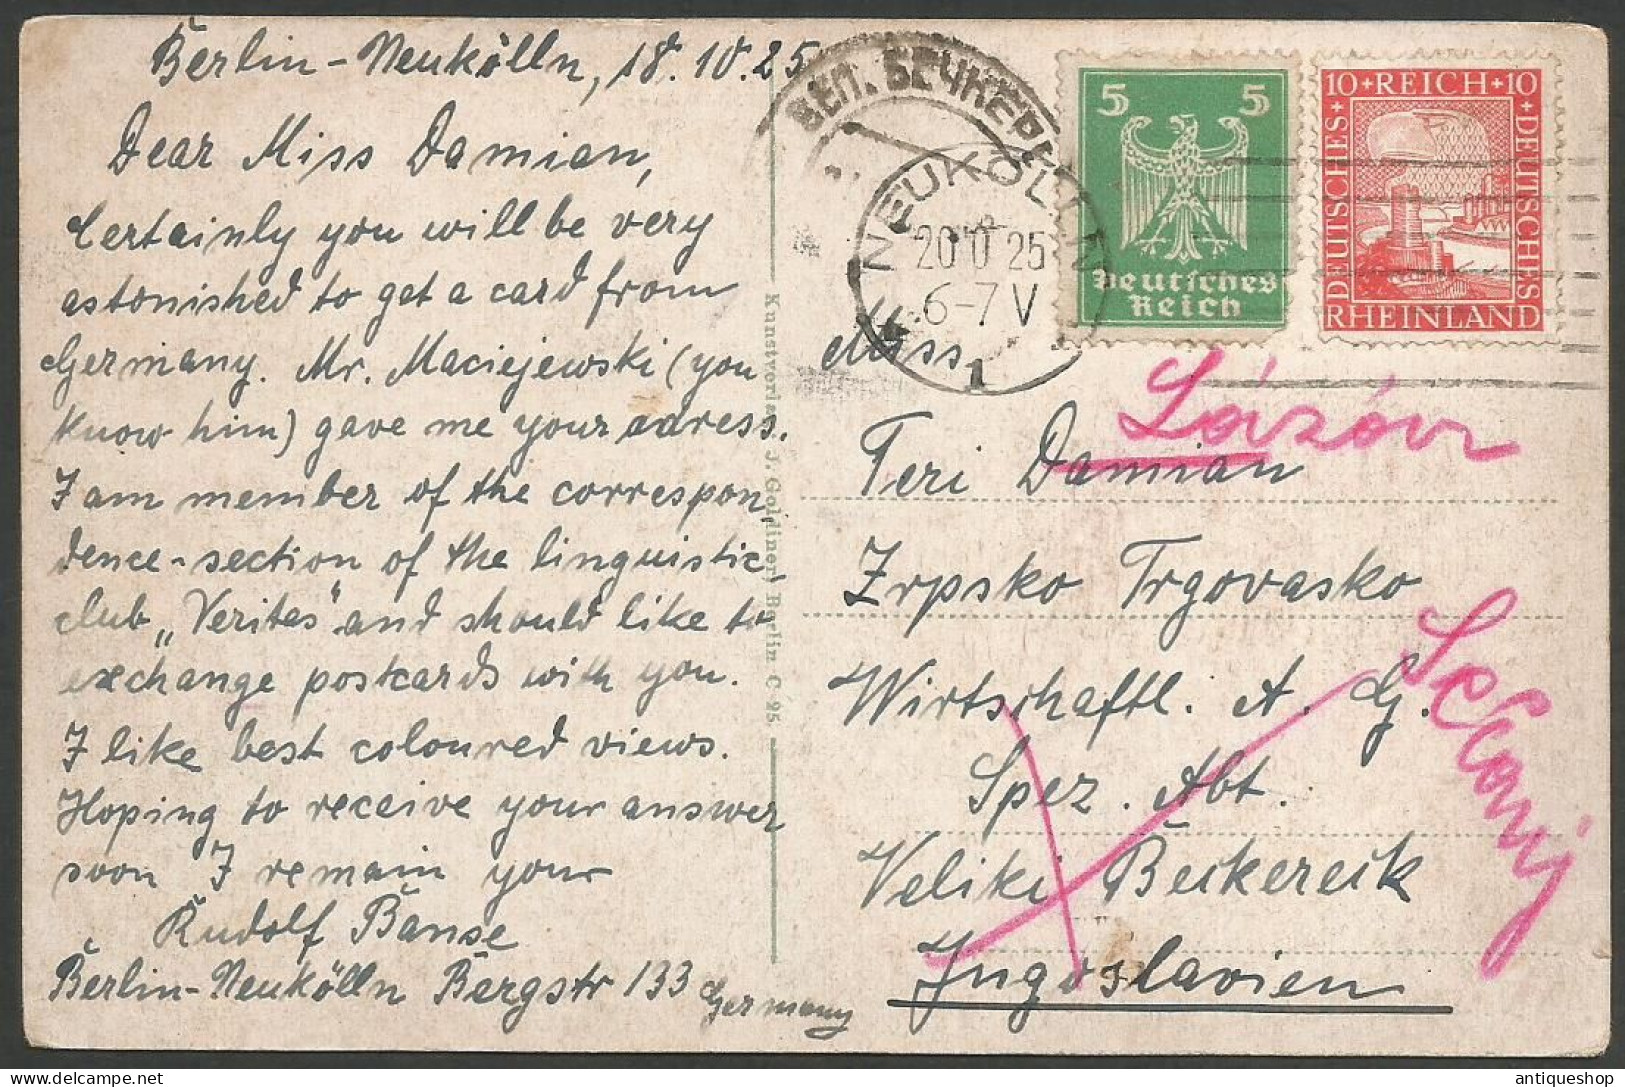 Berlin-Neukölln, 18.10.25
Dear Miss Damian,
Certainly you will be very
astonished to get a card from
Germany. Mr. Maciejewski (you
know him) gave me your adress.
I am member of the correspon-
dence-section of the linguistic-
club „Veritas" and should like to
exchange postcards with you.
I like best coloured views.
Hoping to receive your answer
soon I remain your
Rudolf Banse
Berlin-Neukölln Bergstr 133 Germany
Kunstverlag J. Goldiner, Berlin C 25.
ВЕЛ. БЕЧКЕР
NEUKÖLLN
20 10 25
6-7 V
1
5 5
Deutsches
Reich
10+REICH+10
DEUTSCHES
DEUTSCHES
RHEINLAND
Miss
Teri Damian
Lázár
Zrpsko Trgovasko
Wirtschaftl. A. G.
Spez. Abt.
Veliki Beckereck
Jugoslavien
antiqueshop